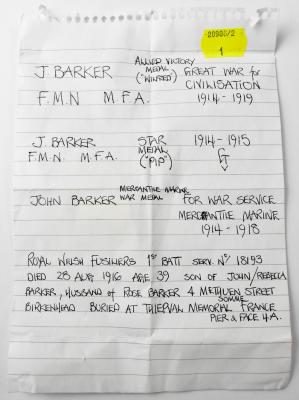 20900/2
1
J. BARKER ALLIED VICTORY MEDAL ("WILFRED") GREAT WAR for CIVILISATION
F.M.N M.F.A. 1914-1919
J. BARKER STAR 1914-1915
F.M.N. M.F.A. MEDAL ("PIP")
JOHN BARKER MERCANTILE MARINE WAR MEDAL FOR WAR SERVICE
MERCANTILE MARINE
1914-1918
ROYAL WELSH FUSILIERS 1ST BATT SERV. No 18193
DIED 28 AUG 1916 AGE 39 SON OF JOHN/REBECCA
BARKER, HUSBAND of ROSE BARKER 4 METHUEN STREET
BIRKENHEAD BURIED AT THIEPVAL MEMORIAL SOMME FRANCE
PIER & FACE 4.A.